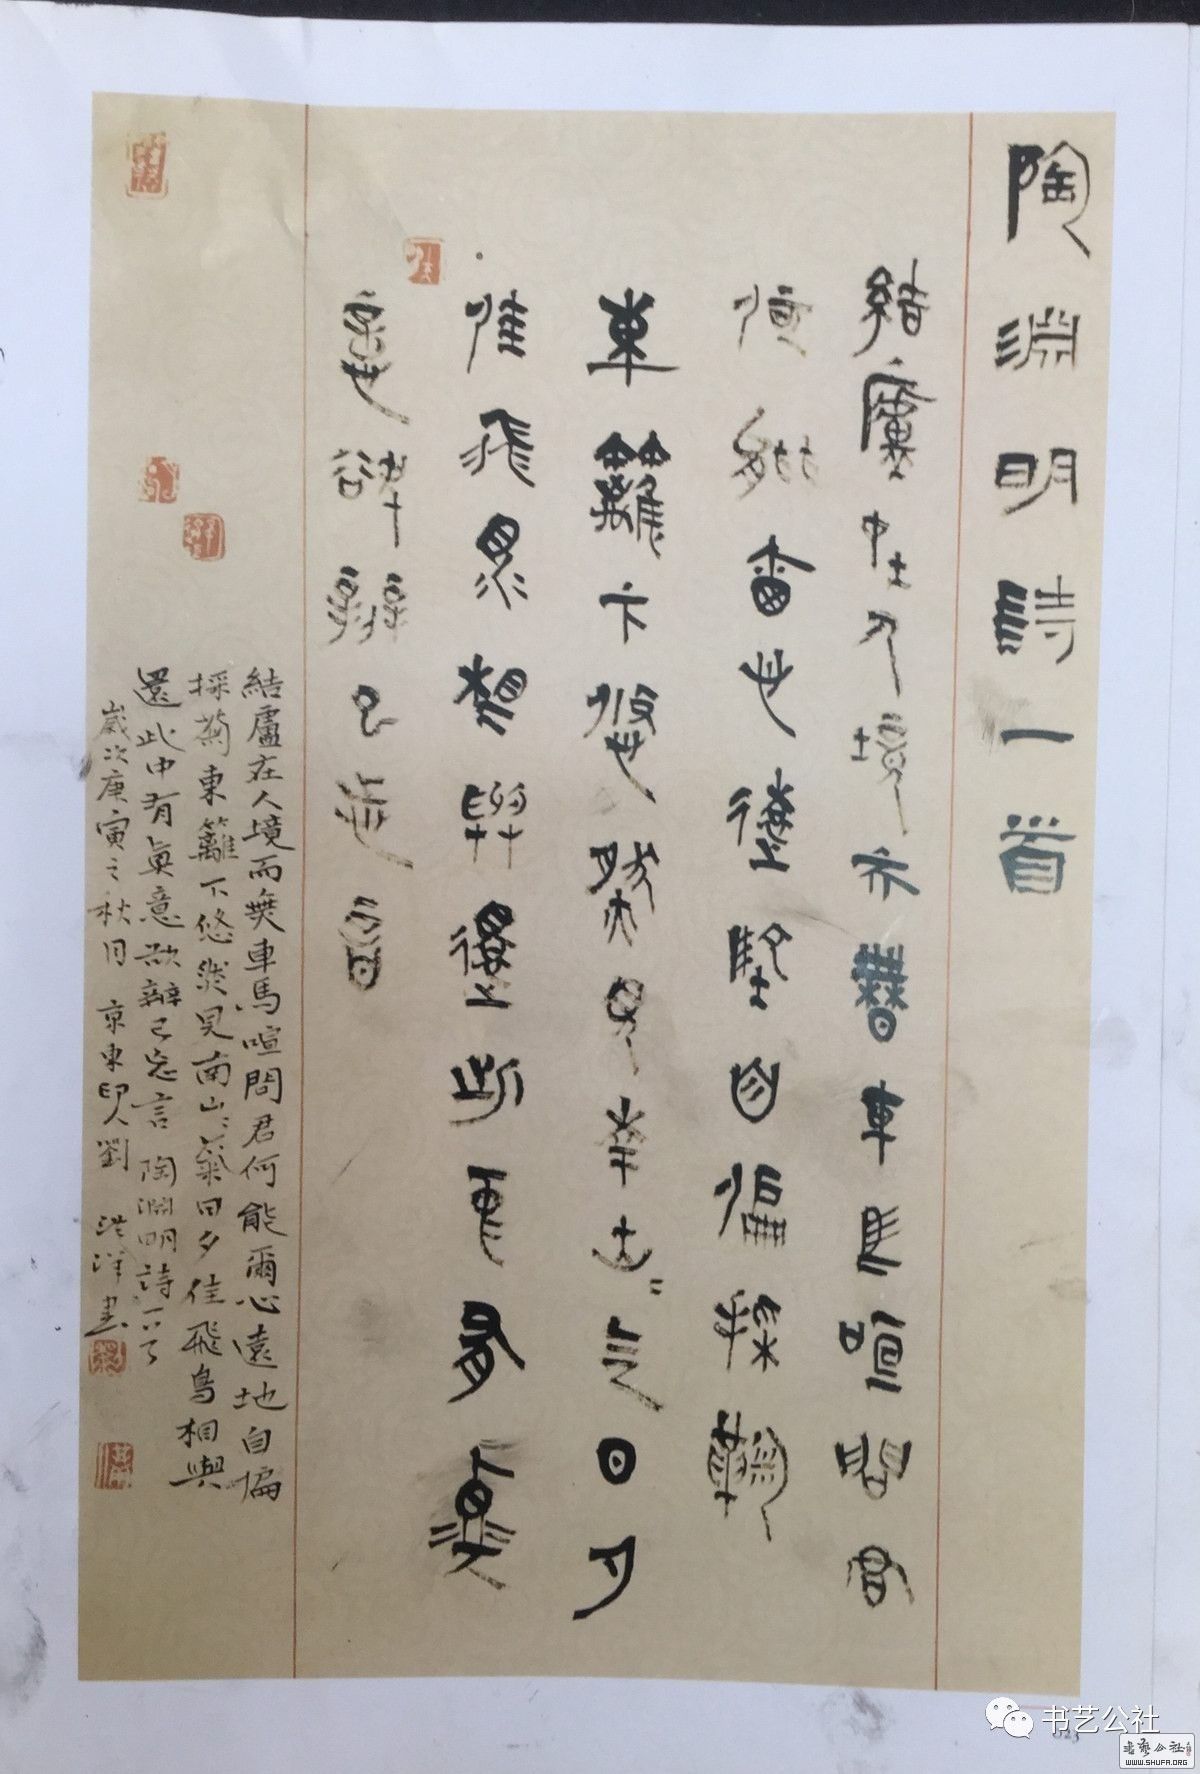 陶淵明詩一首
結廬在人境而無車馬喧問君
何能爾心遠地自偏採菊
東籬下悠然見南山〻氣日夕
佳飛鳥相與還此中有真
意欲辯已忘言
結廬在人境而無車馬喧問君何能爾心遠地自偏
採菊東籬下悠然見南山〻氣日夕佳飛鳥相與
還此中有真意欲辯已忘言 陶淵明詩一首
歲次庚寅之秋月 京東印人劉洪洋書
书艺公社
023
书艺公社
WWW.SHUFA.ORG